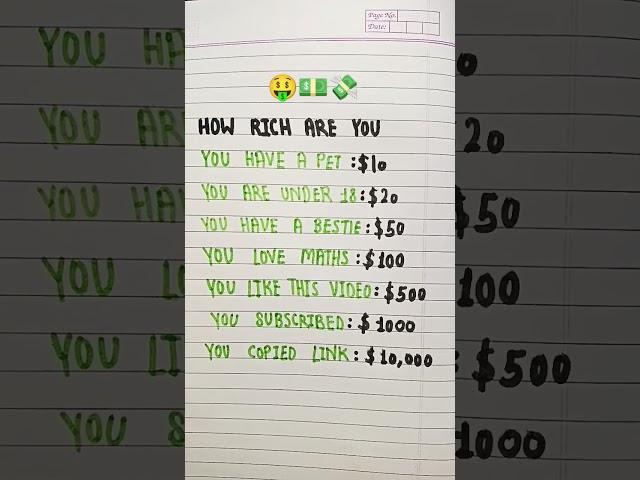 Page No.
Date:
🤑💵💸
HOW RICH ARE YOU
YOU HAVE A PET :$10
YOU ARE UNDER 18:$20
YOU HAVE A BESTIE:$50
YOU LOVE MATHS :$100
YOU LIKE THIS VIDEO:$500
YOU SUBSCRIBED:$1000
YOU COPIED LINK:$10,000